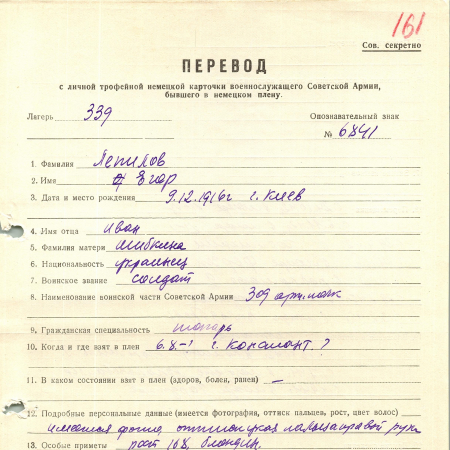 161
Сов. секретно
ПЕРЕВОД
с личной трофейной немецкой карточки военнослужащего Советской Армии,
бывшего в немецком плену.
Лагерь 339 Опознавательный знак
№ 6841
1. Фамилия Лепилов
2. Имя Егор
3. Дата и место рождения 9.12.1916г г. Киев
4. Имя отца Иван
5. Фамилия матери Шибкина
6. Национальность украинец
7. Воинское звание солдат
8. Наименование воинской части Советской Армии 309 арт.полк
9. Гражданская специальность токарь
10. Когда и где взят в плен 6.8.-1 г. ?
11. В каком состоянии взят в плен (здоров, болен, ранен) —
12. Подробные персональные данные (имеется фотография, оттиск пальцев, рост, цвет волос)
имеется фото оттиск пальца правой руки
13. Особые приметы рост 168, блондин.